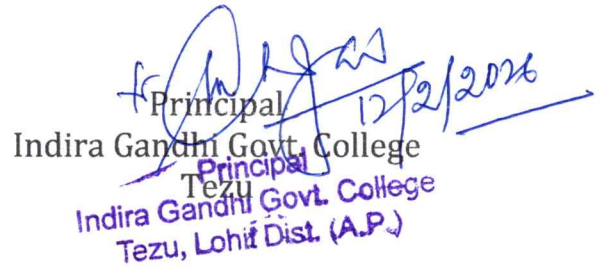 12/2/2026
Principal
Indira Gandhi Govt. College
Tezu
Principal
Indira Gandhi Govt. College
Tezu, Lohit Dist. (A.P.)